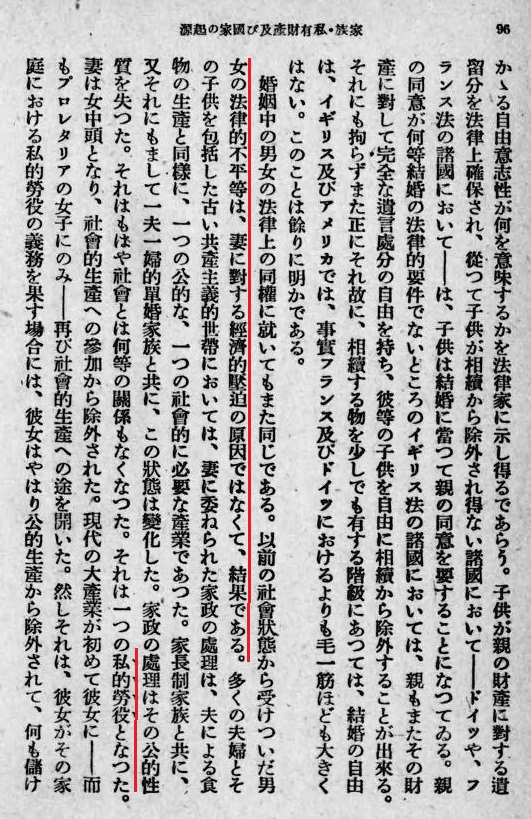 96
家族・私有財產及び國家の起源
かゝる自由意志性が何を意味するかを法律家に示し得るであらう。子供が親の財產に對する遺
留分を法律上確保され、從つて子供が相續から除外され得ない諸國において――ドイツや、フ
ランス法の諸國において――は、子供は結婚に當つて親の同意を要することになつてゐる。親
の同意が何等結婚の法律的要件でないところのイギリス法の諸國においては、親もまたその財
產に對して完全な遺言處分の自由を持ち、彼等の子供を自由に相續から除外することが出來る。
それにも拘らずまた正にそれ故に、相續する物を少しでも有する階級にあつては、結婚の自由
は、イギリス及びアメリカでは、事實フランス及びドイツにおけるよりも毛一筋ほども大きく
はない。このことは餘りに明かである。
婚姻中の男女の法律上の同權に就いてもまた同じである。以前の社會狀態から受けついだ男
女の法律的不平等は、妻に對する經濟的壓迫の原因ではなくて、結果である。多くの夫婦とそ
の子供を包括した古い共產主義的世帶においては、妻に委ねられた家政の處理は、夫による食
物の生產と同樣に、一つの公的な、一つの社會的に必要な產業であつた。家長制家族と共に、
又それにもまして一夫一婦的單婚家族と共に、この狀態は變化した。家政の處理はその公的性
質を失つた。それはもはや社會とは何等の關係もなくなつた。それは一つの私的勞役となつた。
妻は女中頭となり、社會的生產への參加から除外された。現代の大產業が初めて彼女に――而
もプロレタリアの女子にのみ――再び社會的生產への途を開いた。然しそれは、彼女がその家
庭における私的勞役の義務を果す場合には、彼女はやはり公的生產から除外されて、何も儲け